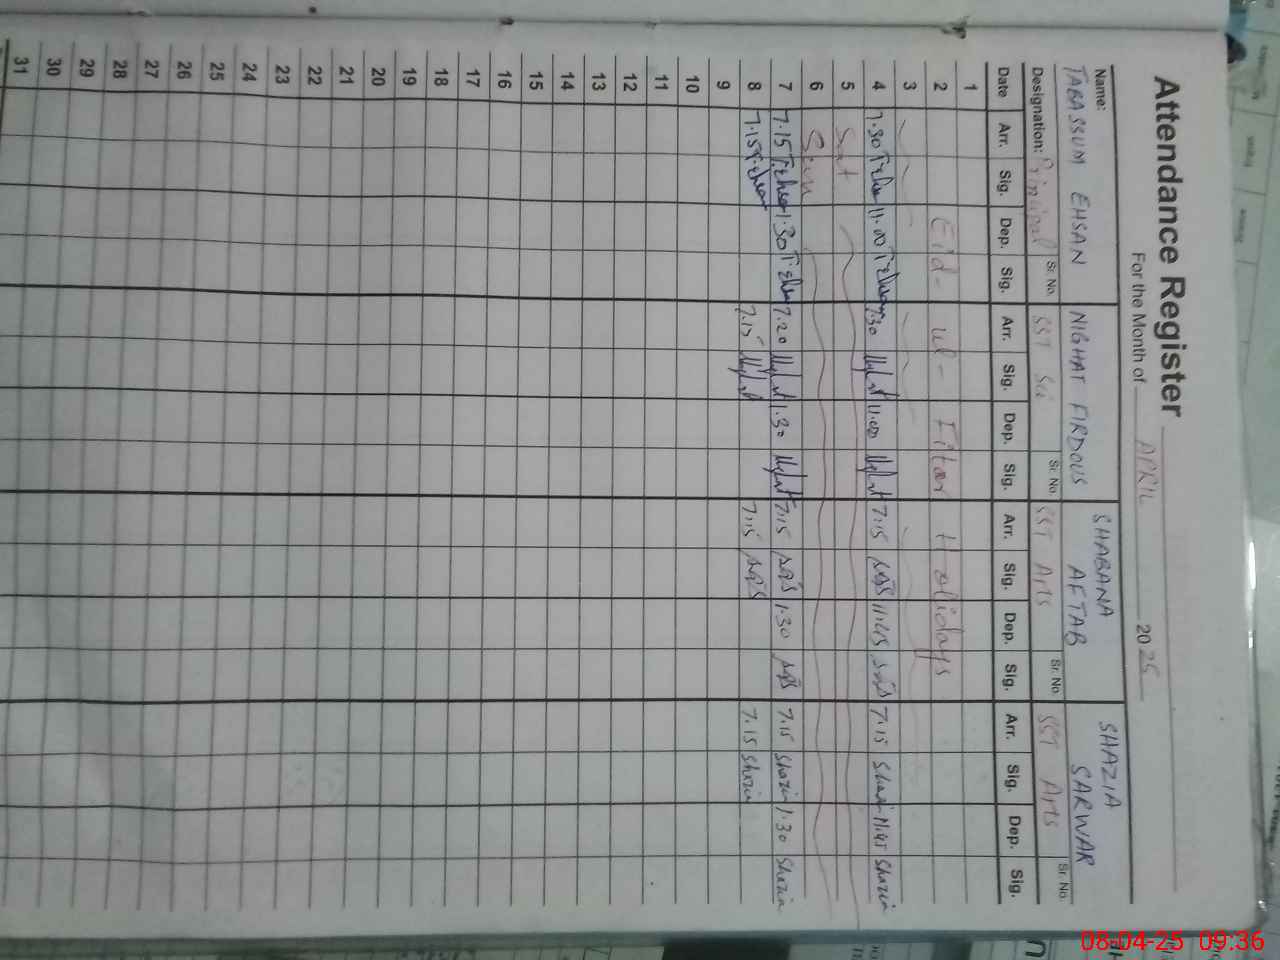 Attendance Register
For the Month of APRIL 2025
Name: TABASSUM EHSAN NIGHAT FIRDOUS SHABANA AFTAB SHAZIA SARWAR
Designation: Principal Sr. No. SST Sci Sr. No. SST Arts Sr. No. SST Arts Sr. No.
Date Arr. Sig. Dep. Sig. Arr. Sig. Dep. Sig. Arr. Sig. Dep. Sig. Arr. Sig. Dep. Sig.
1
2 Eid - ul - Fitar Holidays
3
4 7.30 11.00 7.30 11.00 7:15 11:45 7.15 Shazia 11.45 Shazia
5 Sat
6 Sun
7 7.15 1.30 7.20 1.30 7:15 1.30 7.15 Shazia 1.30 Shazia
8 7.15 7.15 7:15 7.15 Shazia
9
10
11
12
13
14
15
16
17
18
19
20
21
22
23
24
25
26
27
28
29
30
31
08-04-25 09:36